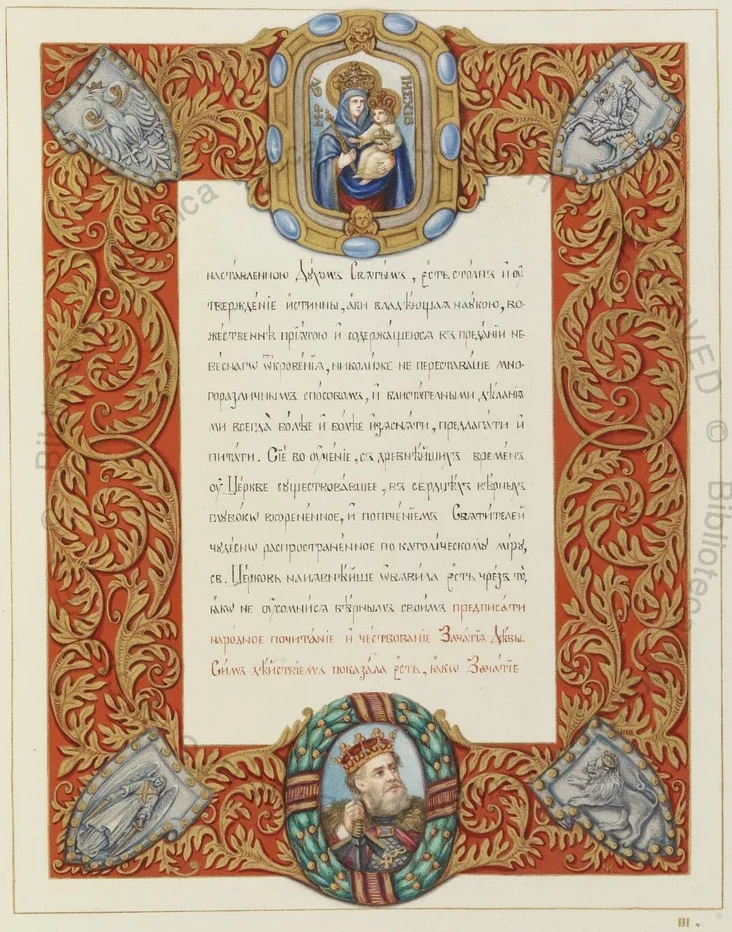 МР ѲУ
наста́вленною Дꙋ́хомъ Свѧты́мъ, є҆́сть сто́лпъ и҆ оу҆-
твержде́нїе и҆́стинны, а҆́ки владѣ́ющаѧ наꙋ́кою, бо-
же́ственнѣ прїѧ́тою и҆ содержа́щеюсѧ въ преда́нїи не-
бе́снагѡ ѿкрове́нїѧ, николи́же не перестава́ше мно-
горазли́чнымъ спо́собомъ, и҆ блиста́телными дѣ́ланїѧ
ми всегда̀ бо́лѣе и҆ бо́лѣе и҆з̾ѧснѧ́ти, предлага́ти и҆
пита́ти. Сїѐ бо оу҆че́нїе, съ древнѣ́йшихъ време́нъ
оу҆ Це́ркве сꙋществова́вшее, въ сердцѣ́хъ вѣ́рныхъ
глꙋбокѡ̀ вкорене́нное, и҆ попече́нїемъ Свѧти́телей
чꙋде́снѡ распростране́нное по католи́ческомꙋ мі́рꙋ,
св. Це́рковь наиѧвнѣ́йше ѡ҆б̾ѧви́ла є҆́сть чрє́зъ то̀,
ꙗ҆́кѡ не
вѣ́рнымъ свои҆́мъ предписа́ти
наро́дное почита́нїе и҆ че́ствованїе Зача́тїѧ Дѣ́вы.
Си́мъ дѣ́йствїемъ показа́ла є҆́сть, ꙗ҆́кѡ Зача́тїе
III.